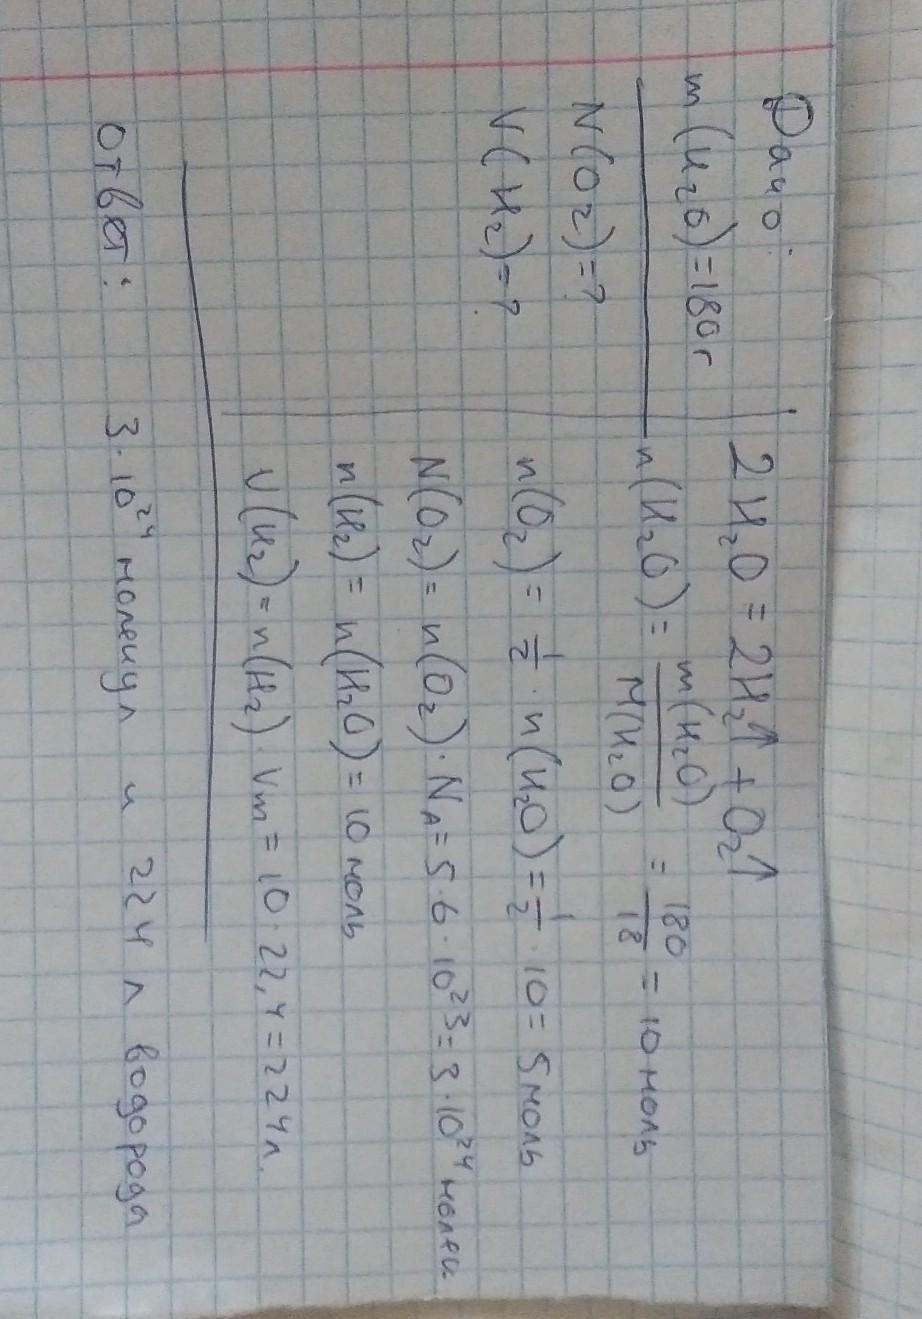 Дано:
m(H₂O)=180г
N(O₂)=?
V(H₂)=?
2H₂O = 2H₂↑ + O₂↑
n(H₂O) = m(H₂O)/M(H₂O) = 180/18 = 10 моль
n(O₂) = 1/2 · n(H₂O) = 1/2 · 10 = 5 моль
N(O₂) = n(O₂) · N_A = 5·6·10²³ = 3·10²⁴ молек
n(H₂) = n(H₂O) = 10 моль
V(H₂) = n(H₂) · Vm = 10 · 22,4 = 224л.
Ответ: 3·10²⁴ молекул и 224 л водорода